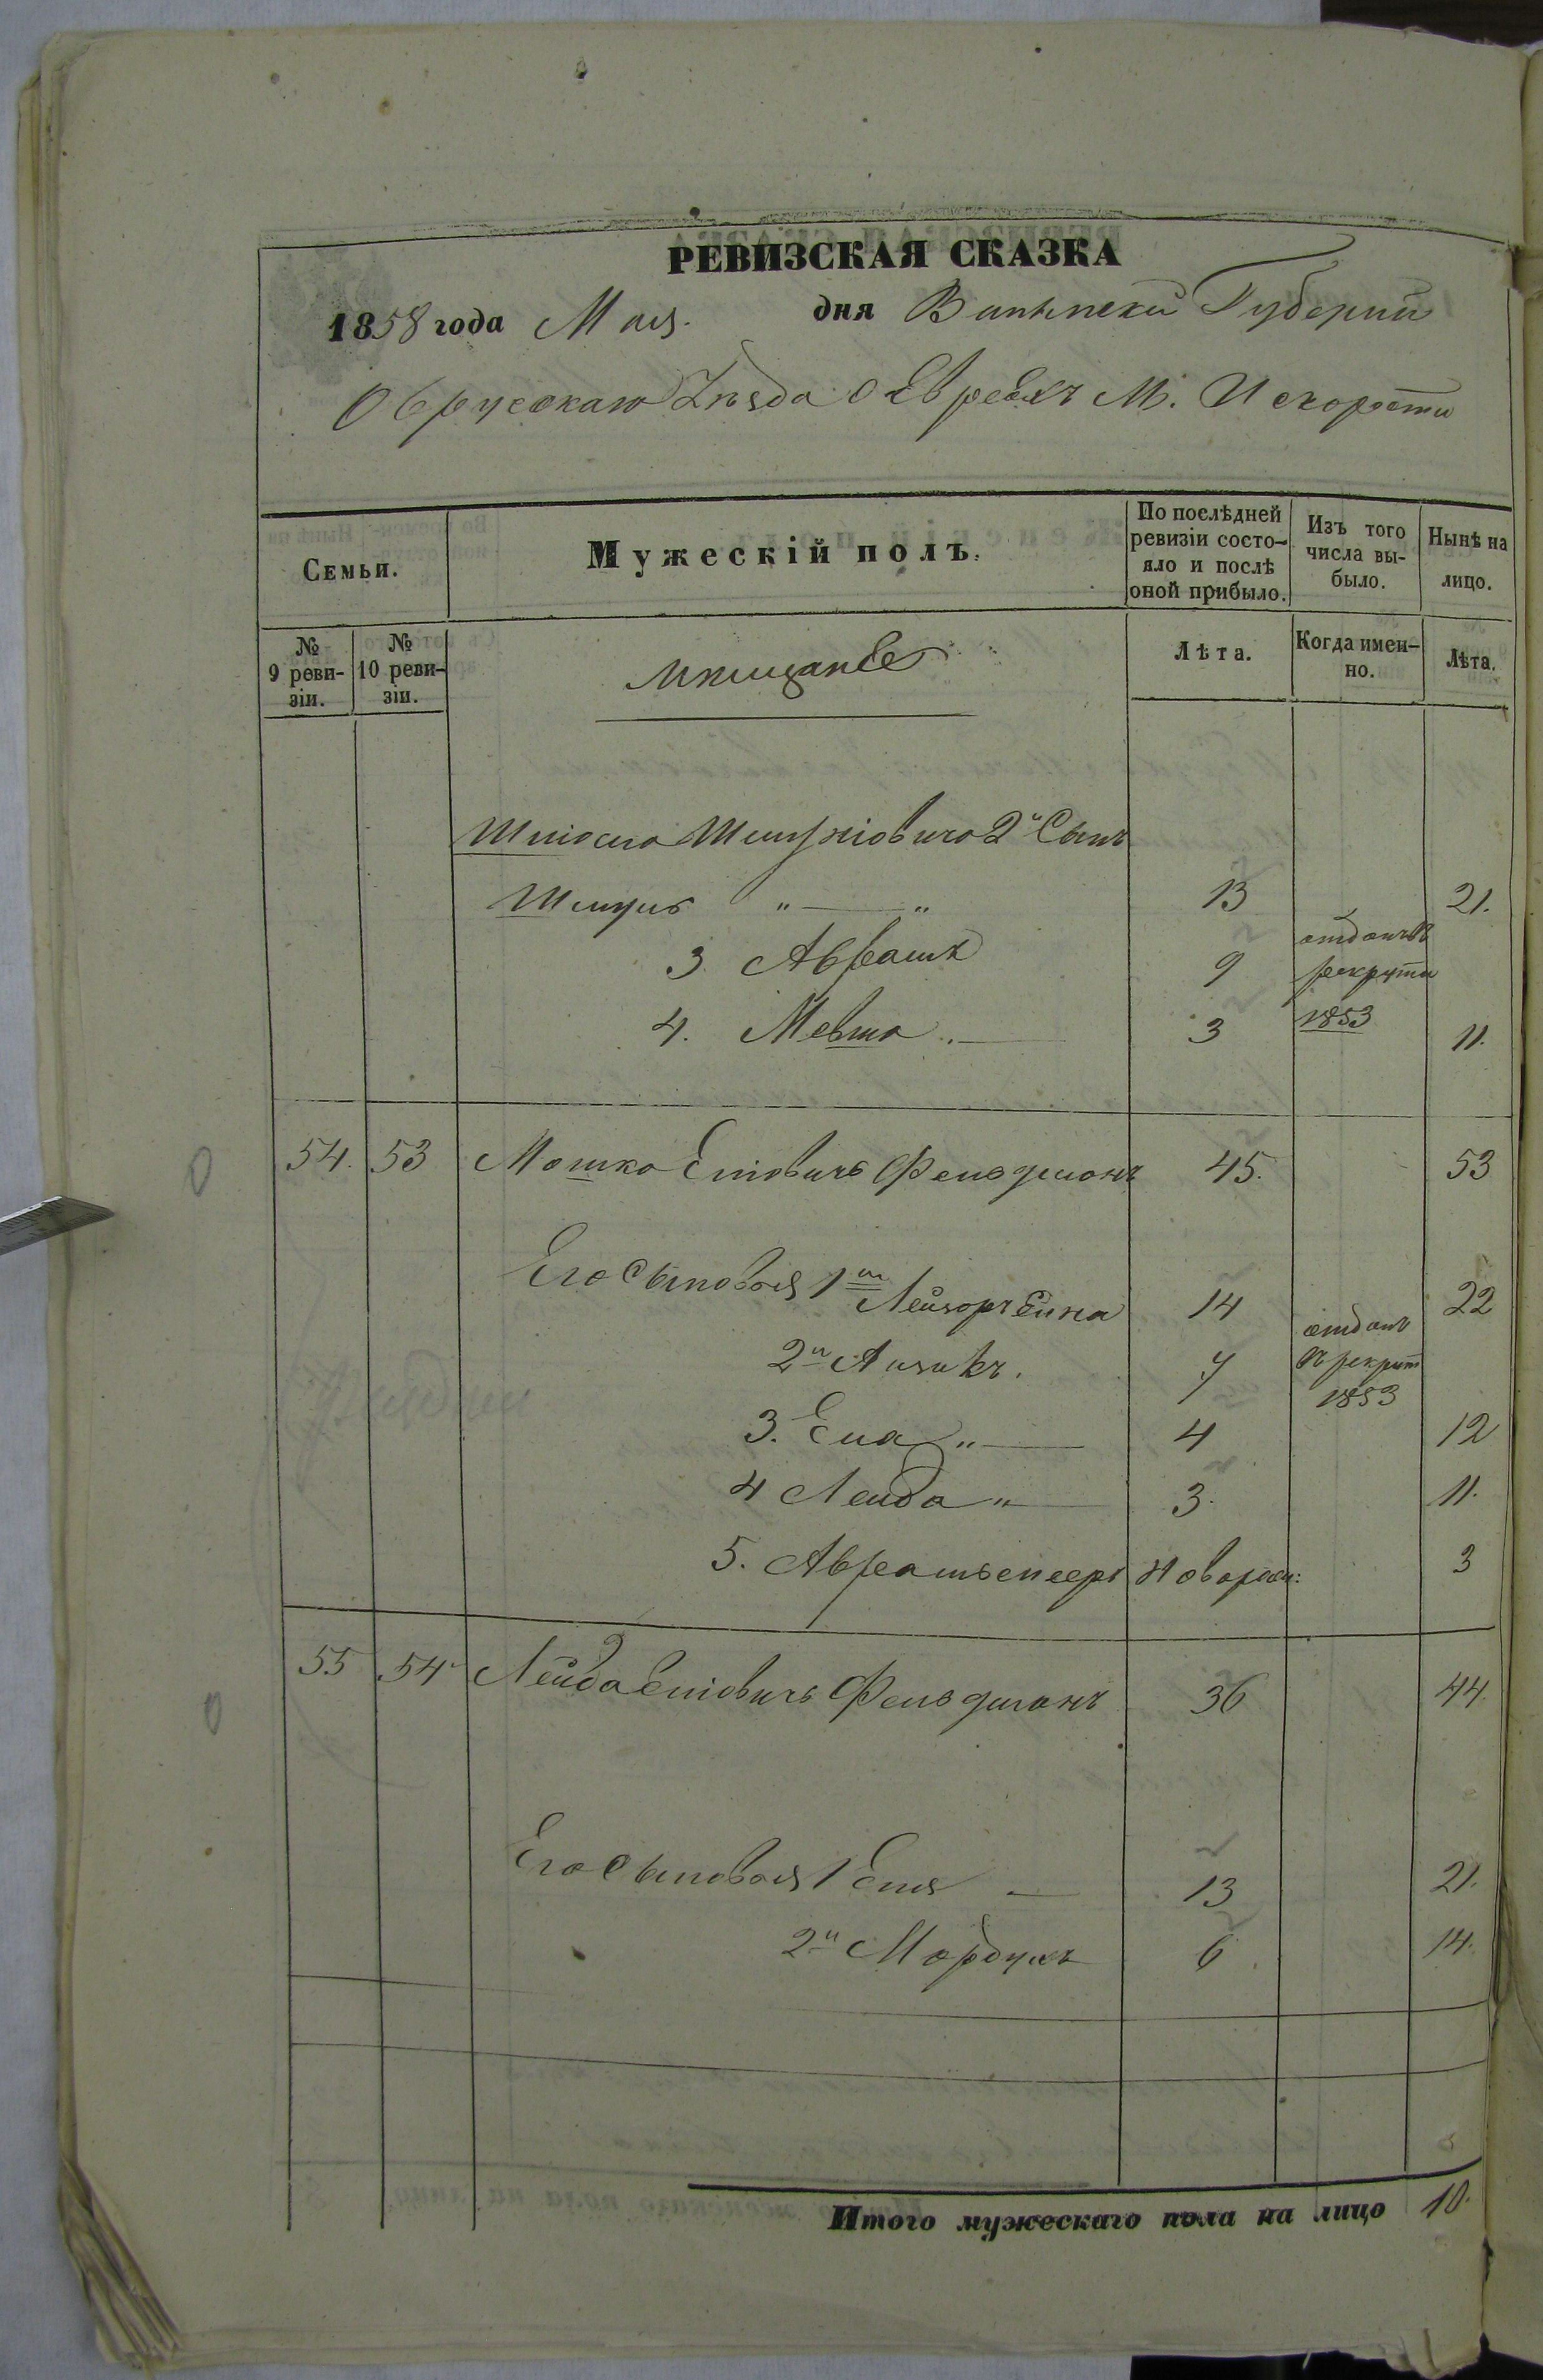 РЕВИЗСКАЯ СКАЗКА
1858 года Мая. дня Губернии
Овручскаго Уѣзда о Евреяхъ М. Искорости
Семьи.
Мужескій полъ.
По послѣдней ревизіи состо-яло и послѣ оной прибыло.
Изъ того числа вы-было.
Нынѣ на лицо.
№ 9 реви-зіи.
№ 10 реви-зіи.
мѣщане
Лѣта.
Когда имен-но.
Лѣта.
2й Сынъ
Шмуль " — " 13 21.
3. Абрамъ 9 отданъ въ рекруты 1853
4. Мевша " — 3 11.
54. 53 Мошко Еліовичъ Фельдманъ 45. 53
Его сыновья 1й 14 22
2й Айзикъ. 7 отданъ в рекрут 1853
3. Еля " — 4 12
4 Лейба " — 3. 11.
5. новорож: 3
55 54 Лейба Еліовичъ Фельдманъ 36 44.
Его сыновья 1 Еля — 13 21.
2й Мордухъ 6 14.
Итого мужескаго пола на лицо 10.